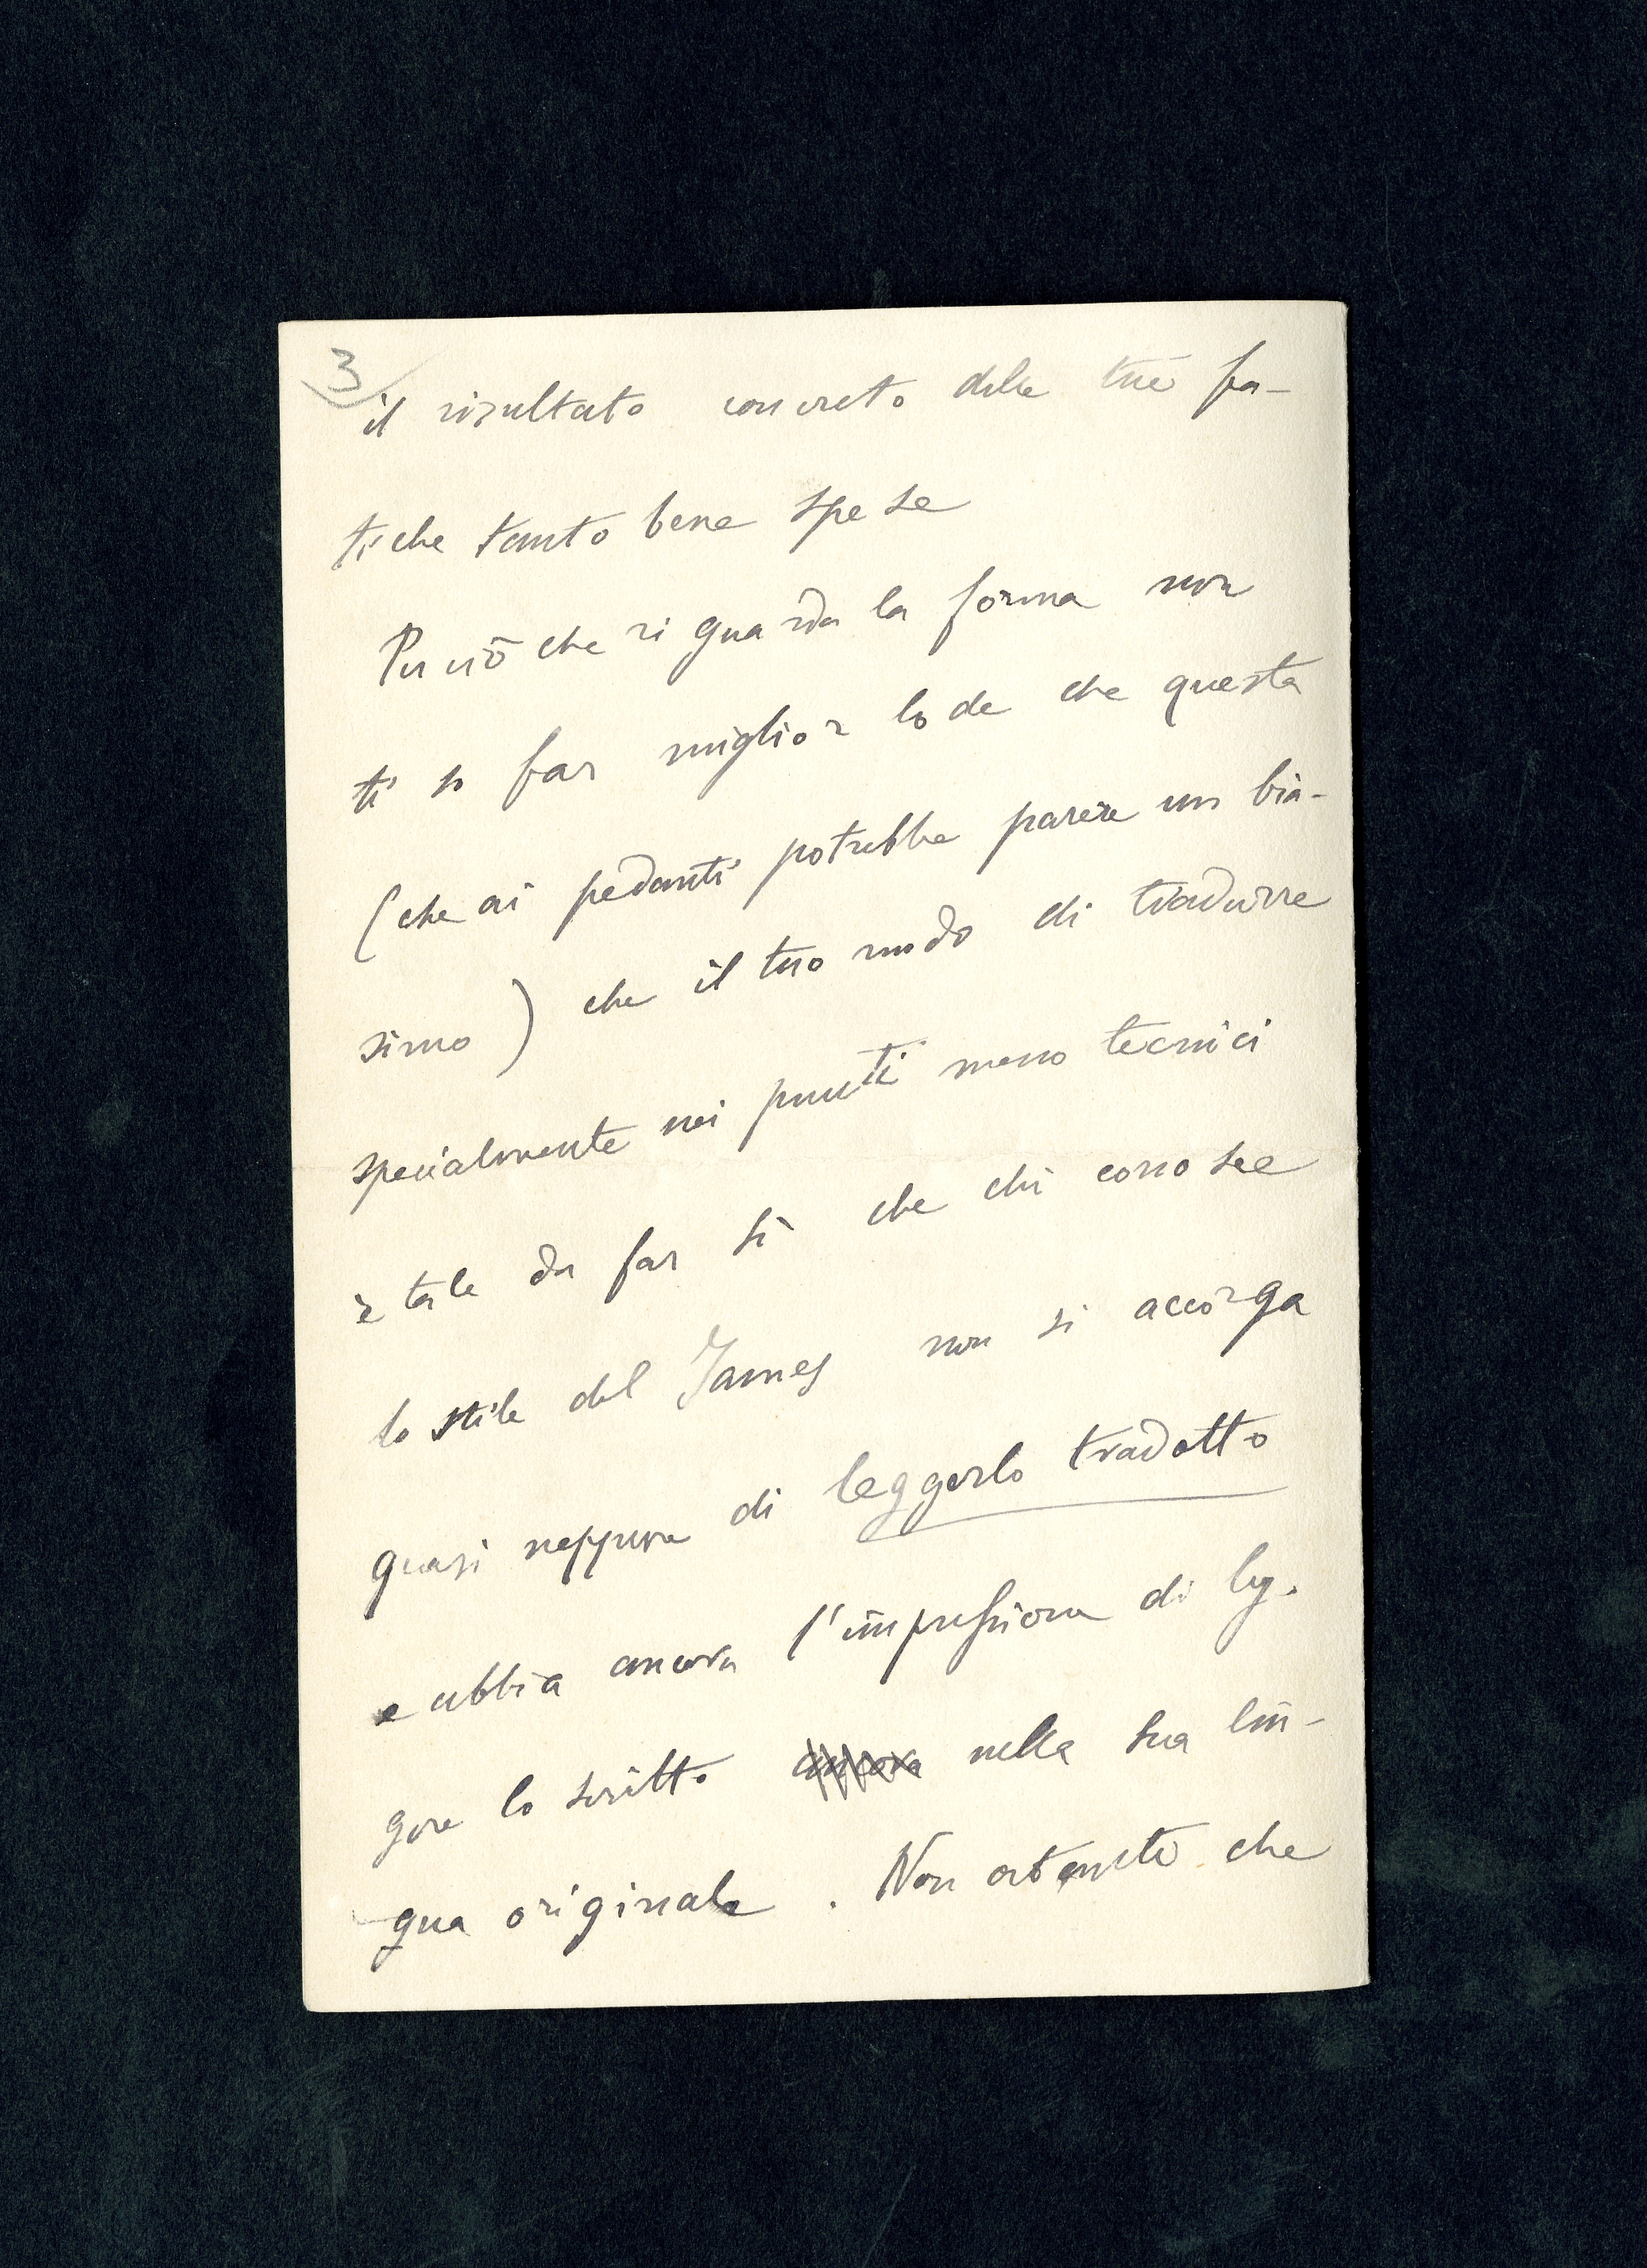 3
il risultato concreto delle tue fa-
tiche tanto bene spese
Per ciò che riguarda la forma non
ti so far miglior lode che questa
(che ai pedanti potrebbe parere un bia-
simo) che il tuo modo di tradurre
specialmente nei punti meno tecnici
è tale da far sì che chi conosce
lo stile del James non si accorga
quasi neppure di leggerlo tradotto
e abbia ancora l'impressione di leg-
gere lo scritto ancora nella sua lin-
gua originale. Non ostante che